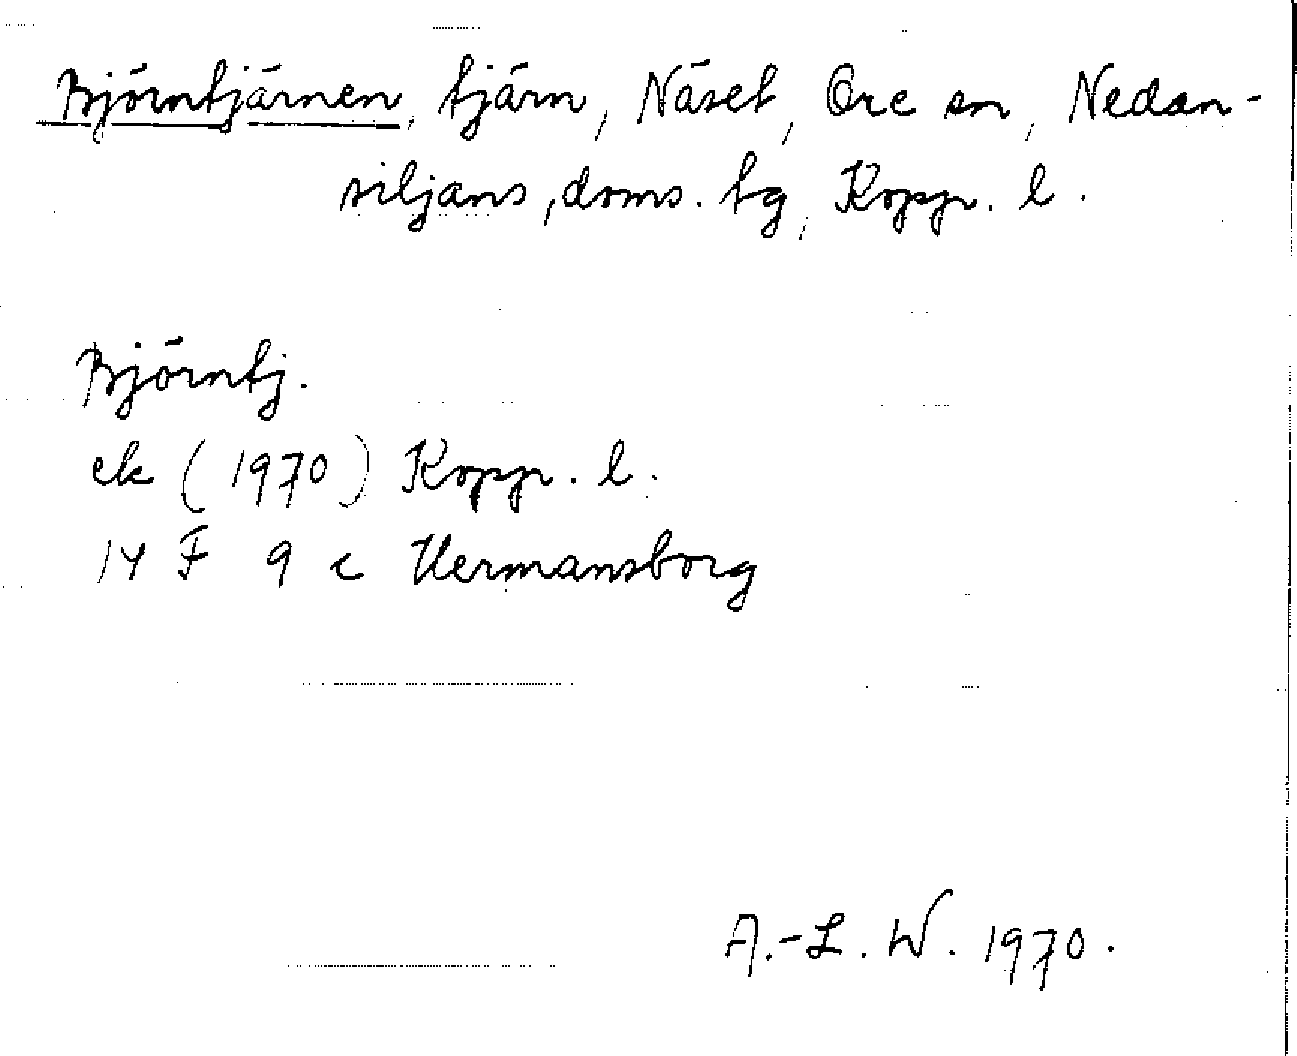 Björntjärnen, tjärn, Näset, Ore sn, Nedan-
siljans, doms. tg, Koppr. l.
Björntj.
ek (1970) Koppr. l.
14 F 9 c Hermansborg
A.-L. W. 1970.